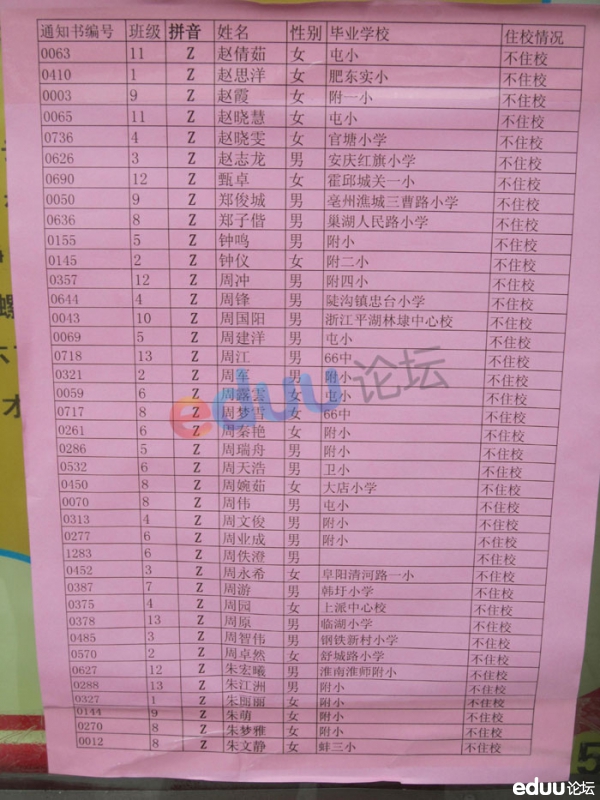 通知书编号 班级 拼音 姓名 性别 毕业学校 住校情况
0063 11 Z 赵倩茹 女 屯小 不住校
0410 1 Z 赵思洋 女 肥东实小 不住校
0003 9 Z 赵霞 女 附一小 不住校
0065 11 Z 赵晓慧 女 屯小 不住校
0736 4 Z 赵晓雯 女 官塘小学 不住校
0626 3 Z 赵志龙 男 安庆红旗小学 不住校
0690 12 Z 甄卓 女 霍邱城关一小 不住校
0050 9 Z 郑俊城 男 亳州谯城三曹路小学 不住校
0636 8 Z 郑子偕 男 巢湖人民路小学 不住校
0155 5 Z 钟鸣 男 附小 不住校
0145 2 Z 钟仪 女 附二小 不住校
0357 12 Z 周冲 男 附四小 不住校
0644 4 Z 周锋 男 陡沟镇忠台小学 不住校
0043 10 Z 周国阳 男 浙江平湖林埭中心校 不住校
0069 5 Z 周建洋 男 屯小 不住校
0718 13 Z 周江 男 66中 不住校
0321 2 Z 周军 男 附小 不住校
0059 6 Z 周露雲 女 屯小 不住校
0717 8 Z 周梦雪 女 66中 不住校
0261 6 Z 周秦艳 女 附小 不住校
0286 5 Z 周瑞舟 男 附小 不住校
0532 6 Z 周天浩 男 卫小 不住校
0450 8 Z 周婉茹 女 大店小学 不住校
0070 8 Z 周伟 男 屯小 不住校
0313 4 Z 周文俊 男 附小 不住校
0277 6 Z 周业成 男 附小 不住校
1283 6 Z 周佚澄 男 不住校
0452 3 Z 周永希 女 阜阳清河路一小 不住校
0387 7 Z 周游 男 韩圩小学 不住校
0375 4 Z 周园 女 上派中心校 不住校
0378 13 Z 周原 男 临湖小学 不住校
0485 3 Z 周智伟 男 钢铁新村小学 不住校
0570 2 Z 周卓然 女 舒城路小学 不住校
0627 12 Z 朱宏曦 男 淮南淮师附小 不住校
0288 13 Z 朱江洲 男 附小 不住校
0327 1 Z 朱丽丽 女 附小 不住校
0144 9 Z 朱萌 女 附小 不住校
0270 8 Z 朱梦雅 女 附小 不住校
0012 8 Z 朱文静 女 蚌三小 不住校
eduu论坛
eduu论坛